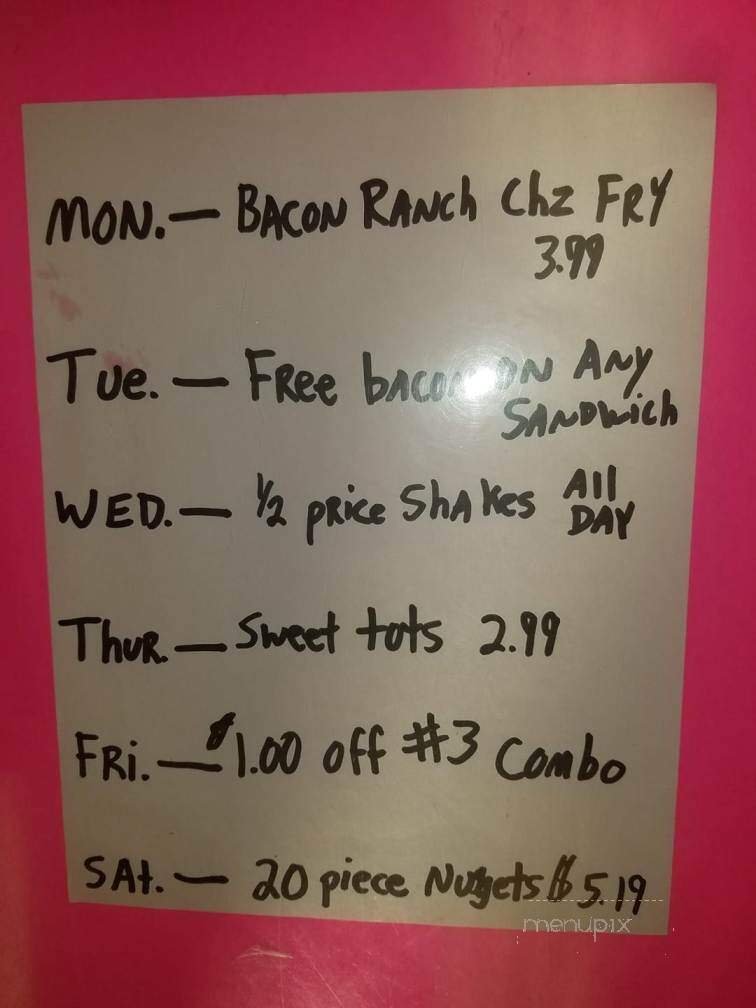 MON. — BACON RANCh Chz FRY
3.99
Tue. — FRee bacon ON ANY
SANDWich
WED. — 1/2 pRice ShAkes All
DAY
ThuR. — Sweet tots 2.99
FRi. — $1.00 off #3 Combo
SAt. — 20 piece Nuggets $5.19
menupix